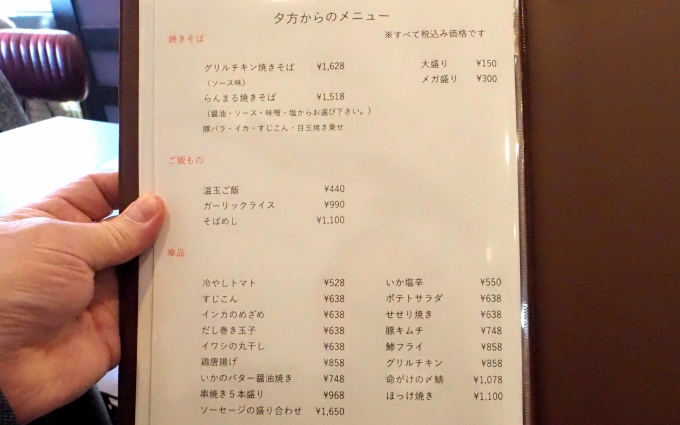 夕方からのメニュー
※すべて税込み価格です
焼きそば
グリルチキン焼きそば ¥1,628
（ソース味）
らんまる焼きそば ¥1,518
（醤油・ソース・味噌・塩からお選び下さい。）
豚バラ・イカ・すじこん・目玉焼き乗せ
大盛り ¥150
メガ盛り ¥300
ご飯もの
温玉ご飯 ¥440
ガーリックライス ¥990
そばめし ¥1,100
単品
冷やしトマト ¥528
すじこん ¥638
インカのめざめ ¥638
だし巻き玉子 ¥638
イワシの丸干し ¥638
鶏唐揚げ ¥858
いかのバター醤油焼き ¥748
串焼き５本盛り ¥968
ソーセージの盛り合わせ ¥1,650
いか塩辛 ¥550
ポテトサラダ ¥638
せせり焼き ¥638
豚キムチ ¥748
鯵フライ ¥858
グリルチキン ¥858
命がけの〆鯖 ¥1,078
ほっけ焼き ¥1,100